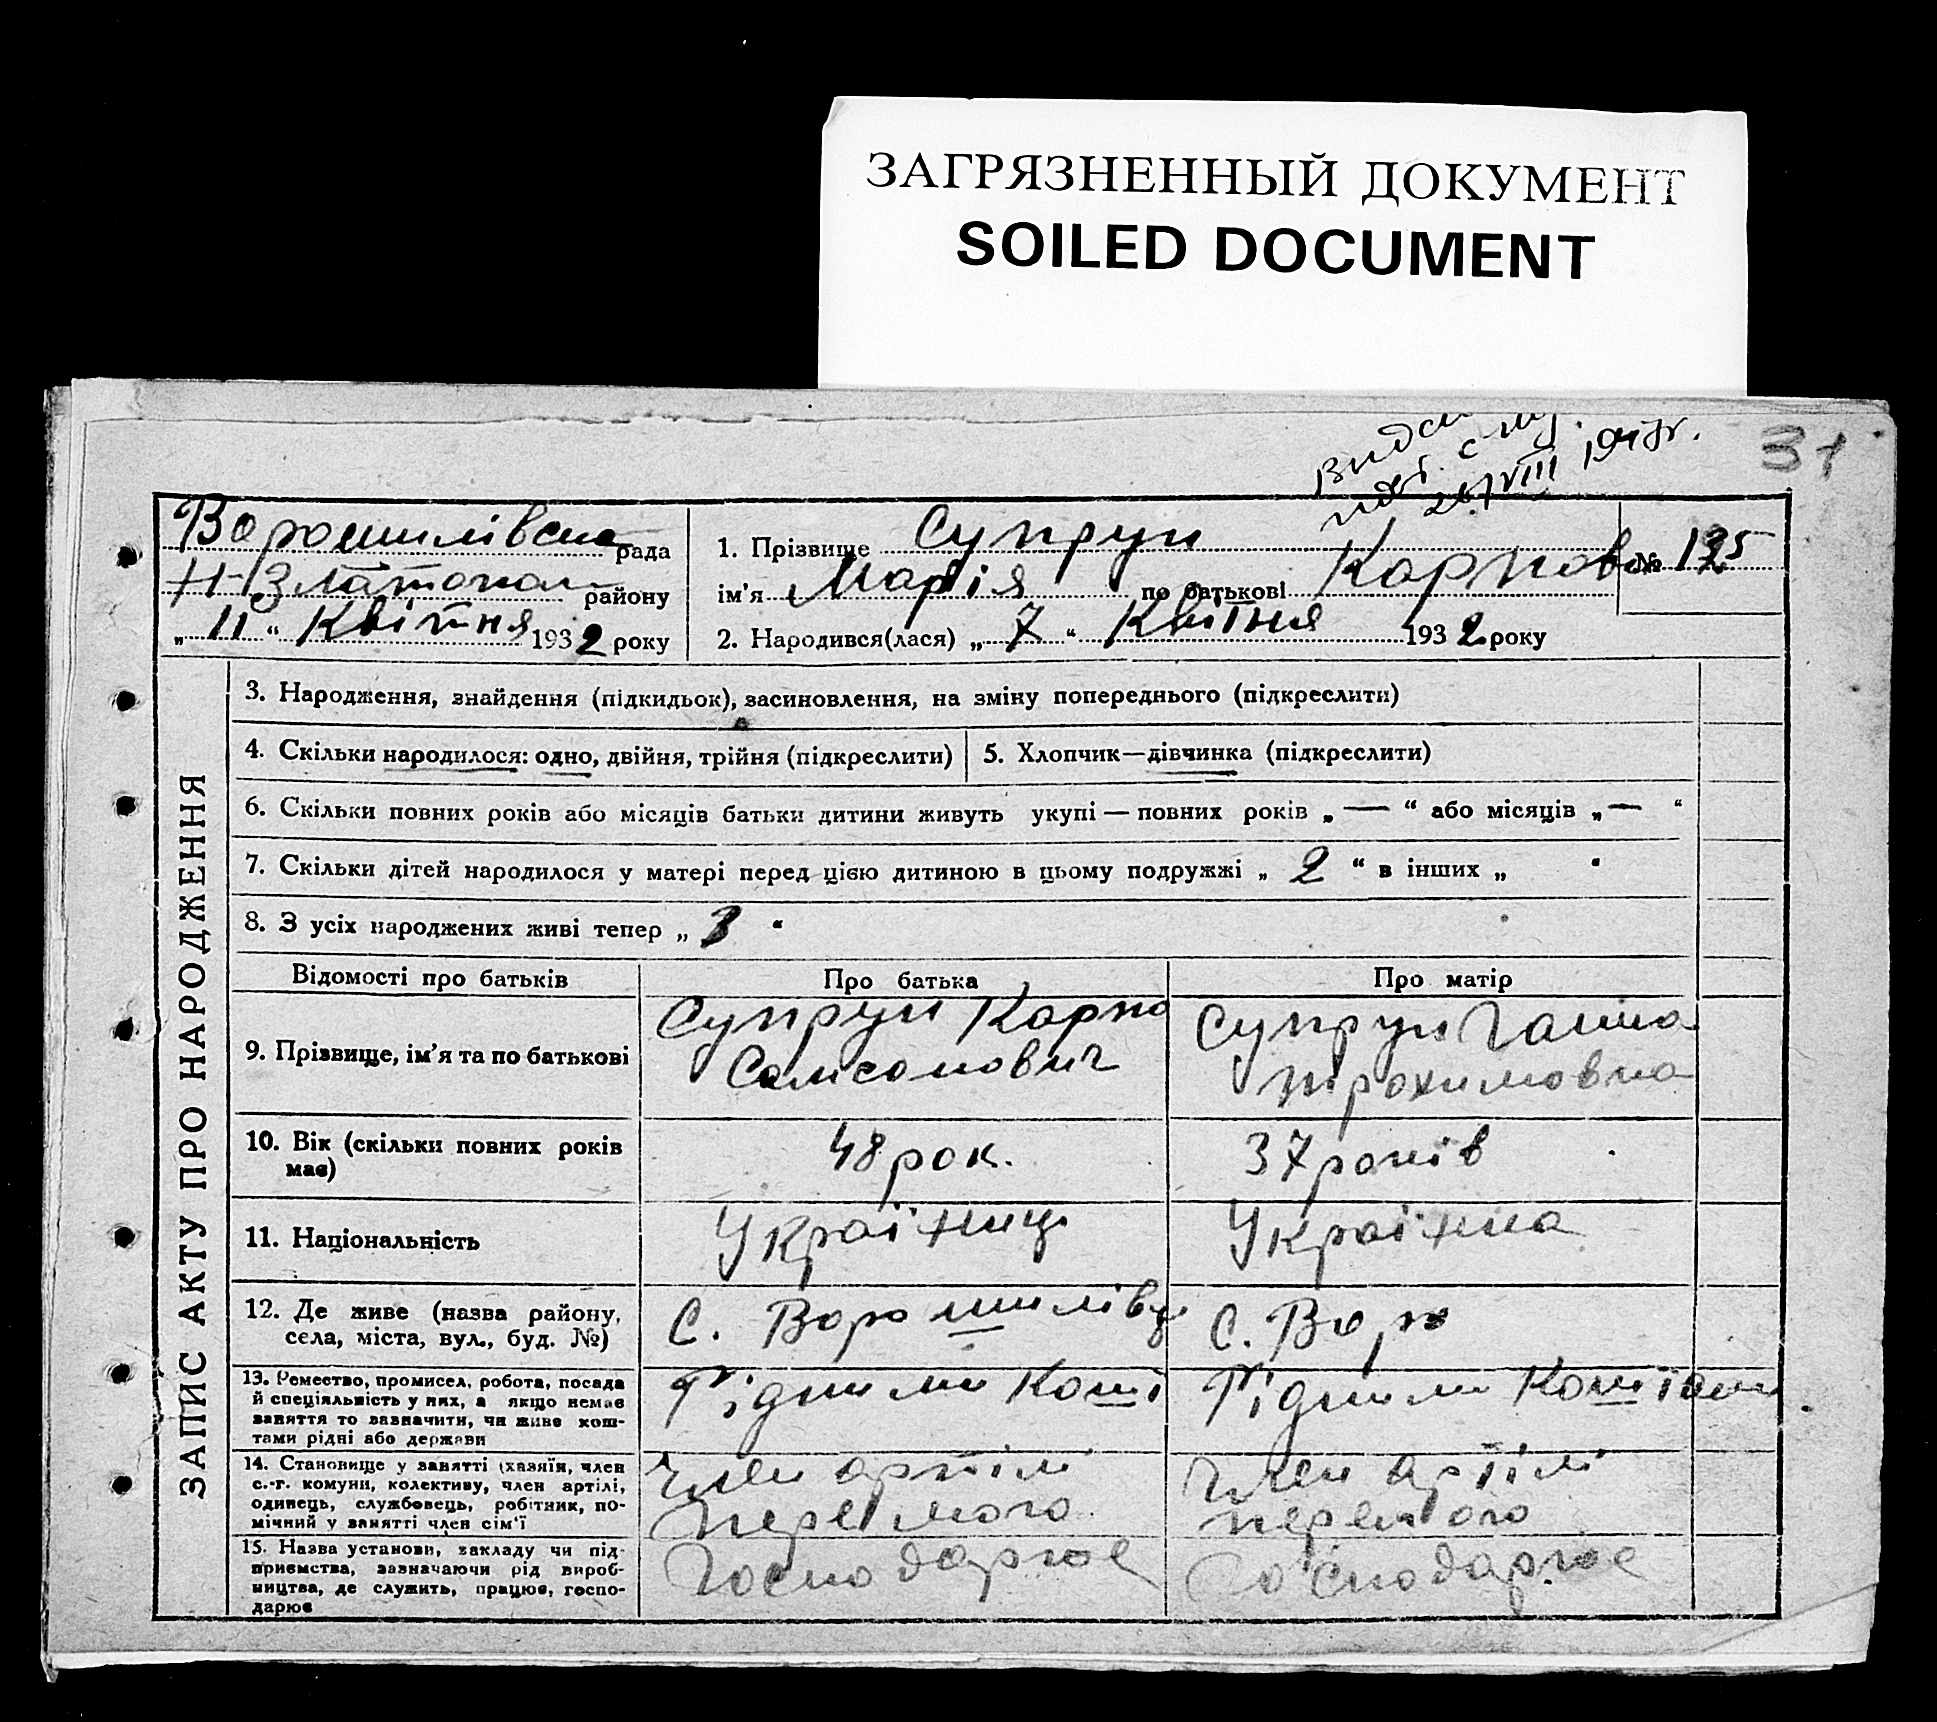 ЗАГРЯЗНЕННЫЙ ДОКУМЕНТ
SOILED DOCUMENT
26/VIII 1947г.
31
Ворошилівська рада
Н-Златопол району
„ 11 “ Квітня 1932 року
1. Прізвище Супрун
ім'я Марія по батькові Карповна
№ 125
2. Народився(лася) „ 7 “ Квітня 1932 року
ЗАПИС АКТУ ПРО НАРОДЖЕННЯ
3. Народження, знайдення (підкидьок), засиновлення, на зміну попереднього (підкреслити)
4. Скільки народилося: одно, двійня, трійня (підкреслити)
5. Хлопчик—дівчинка (підкреслити)
6. Скільки повних років або місяців батьки дитини живуть укупі — повних років „ — “ або місяців „ — “
7. Скільки дітей народилося у матері перед цією дитиною в цьому подружжі „ 2 “ в інших „ “
8. З усіх народжених живі тепер „ 3 “
Відомості про батьків Про батька Про матір
9. Прізвище, ім'я та по батькові
Супрун Карпо
Самсонович
Супрун Ганна
Трохимовна
10. Вік (скільки повних років
має)
48 рок.
37 років
11. Національність
Україниць
Українка
12. Де живе (назва району,
села, міста, вул., буд. №)
С. Ворошилівці
С. Вор
13. Ремество, промисел, робота, посада
й спеціяльність у них, а якщо немає
заняття то зазначити, чи живе кош-
тами рідні або держави
Рідними Коші
Рідними Коштами
14. Становище у занятті (хазяїн, член
с.-г. комуни, колективу, член артілі,
одинець, службовець, робітник, по-
мічний у занятті член сім'ї
Член артілі
Перемога
Член артілі
перемога
15. Назва установи, закладу чи під-
приємства, зазначаючи рід вироб-
ництва, де служить, працює, госпо-
дарює
Господарює
Господарює